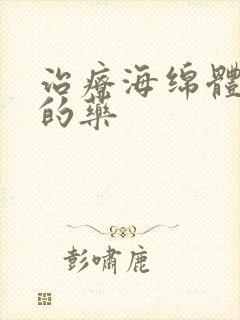 治療海绵體
的藥
彭嘯鹿